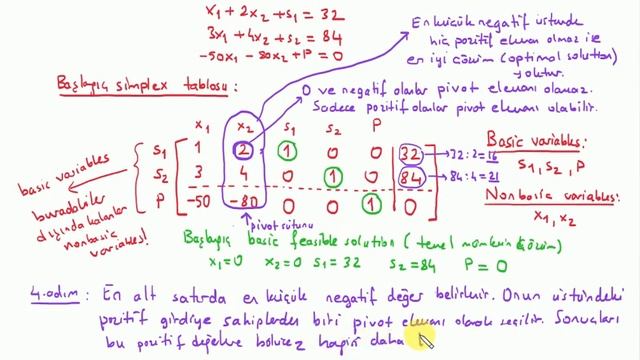 x₁ + 2x₂ + s₁ = 32
3x₁ + 4x₂ + s₂ = 84
-50x₁ - 80x₂ + P = 0
En küçük negatif üstünde
hiç pozitif eleman olmaz ise
en iyi çözüm (optimal solution)
yoktur.
0 ve negatif olanlar pivot elemanı olamaz.
Sadece pozitif olanlar pivot elemanı olabilir.
Başlangıç simplex tablosu:
x₁ x₂ s₁ s₂ P
s₁ 1 2 1 0 0 32 → 32:2=16
s₂ 3 4 0 1 0 84 → 84:4=21
P -50 -80 0 0 1 0
basic variables
buradakiler
dışında kalanlar
nonbasic
variables!
Basic variables:
s₁, s₂, P
Nonbasic variables:
x₁, x₂
pivot sütunu
Başlangıç basic feasible solution (temel mümkün çözüm)
x₁=0 x₂=0 s₁=32 s₂=84 P=0
4.adım: En alt satırda en küçük negatif değer belirlenir. Onun üstündeki
pozitif girdiye sahiplerden biri pivot elemanı olarak seçilir. Sonuçları
bu pozitif değerlere böleriz hangisi daha